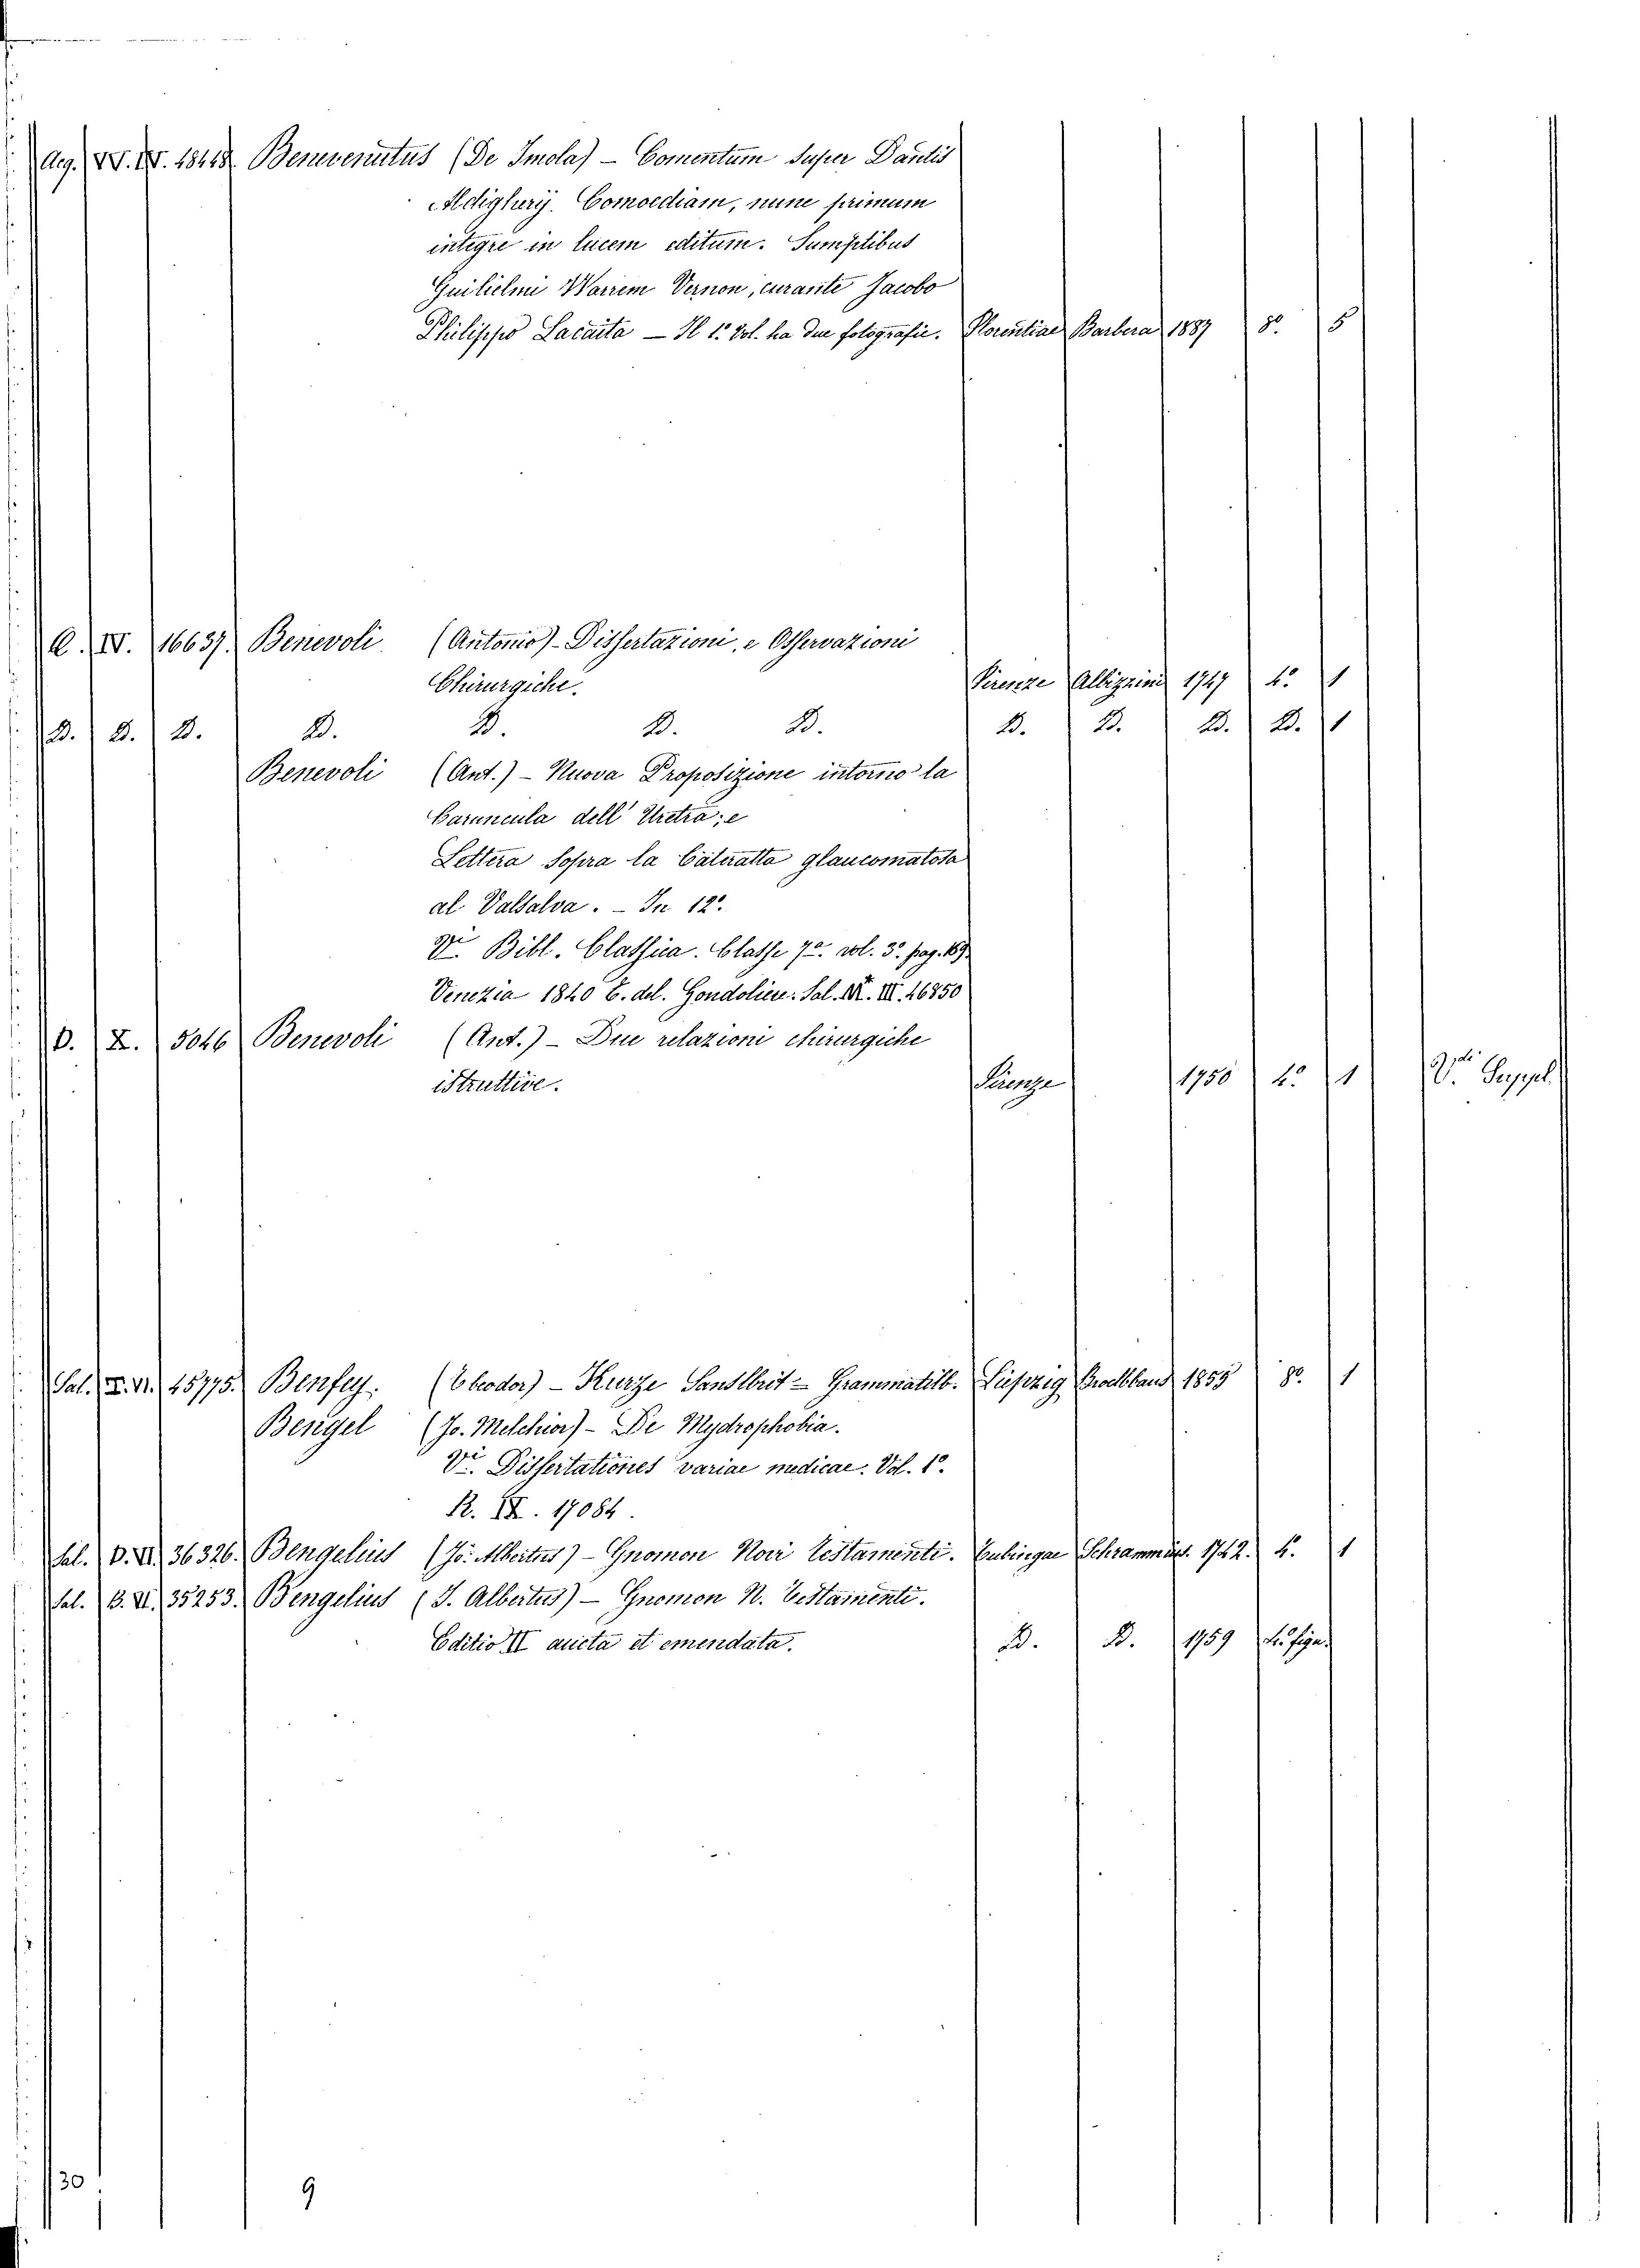 Aeg. VV. IV. 18418 Benevenutus (De Imola) – Comentum Super Dantis
Aldighery. Comoediam, nunc primum
integre in lucem editum. Sumptibus
Guilielmi Warrem Vernon, curante Jacobo
Philippo Lacaita – Il 1.º Vol. ha due fotografie. Florentiae Barbera 1887 8º 5
Q. IV. 16637. Benevoli (Antonio) – Dissertazioni, e Osservazioni
Chirurgiche. Firenze Albizzini 1747 4º 1
D. D. D. D. D. D. D. D. D. D. D. 1
Benevoli (Ant.) – Nuova Proposizione intorno la
Caruncula dell' Uretra; e
Lettera Sopra la Cateratta glaucomatosa
al Valsalva. – In 12º.
Vi. Bibl. Classica. Classe 7ª. vol. 3º. pag. 169.
Venezia 1840 C. del. Gondoliere. Sal. III. 46850
D. X. 5046 Benevoli (Ant.) – Due relazioni chirurgiche
istruttive. Firenze 1750 4º 1 Vdi. Suppl.
Sal. X. VI. 45775. Benfey. (Theodor) – Kurze Sanskrit = Grammatik. Liepzig Brockhaus 1855 8º. 1
Bengel (Jo. Melchior) – De Hydrophobia.
Vi. Dissertationes variae medicae. Vol. 1º.
R. IX. 17084.
Sal. D. VI. 36326. Bengelius (Jo. Albertus) – Gnomon Novi Testamenti. Tubingae Schrammius. 1742. 4. 1
Sal. B. VI. 35253. Bengelius (J. Albertus) – Gnomon N. Testamenti.
Editio II aucta et emendata. D. D. 1759 4º figu.
30
9